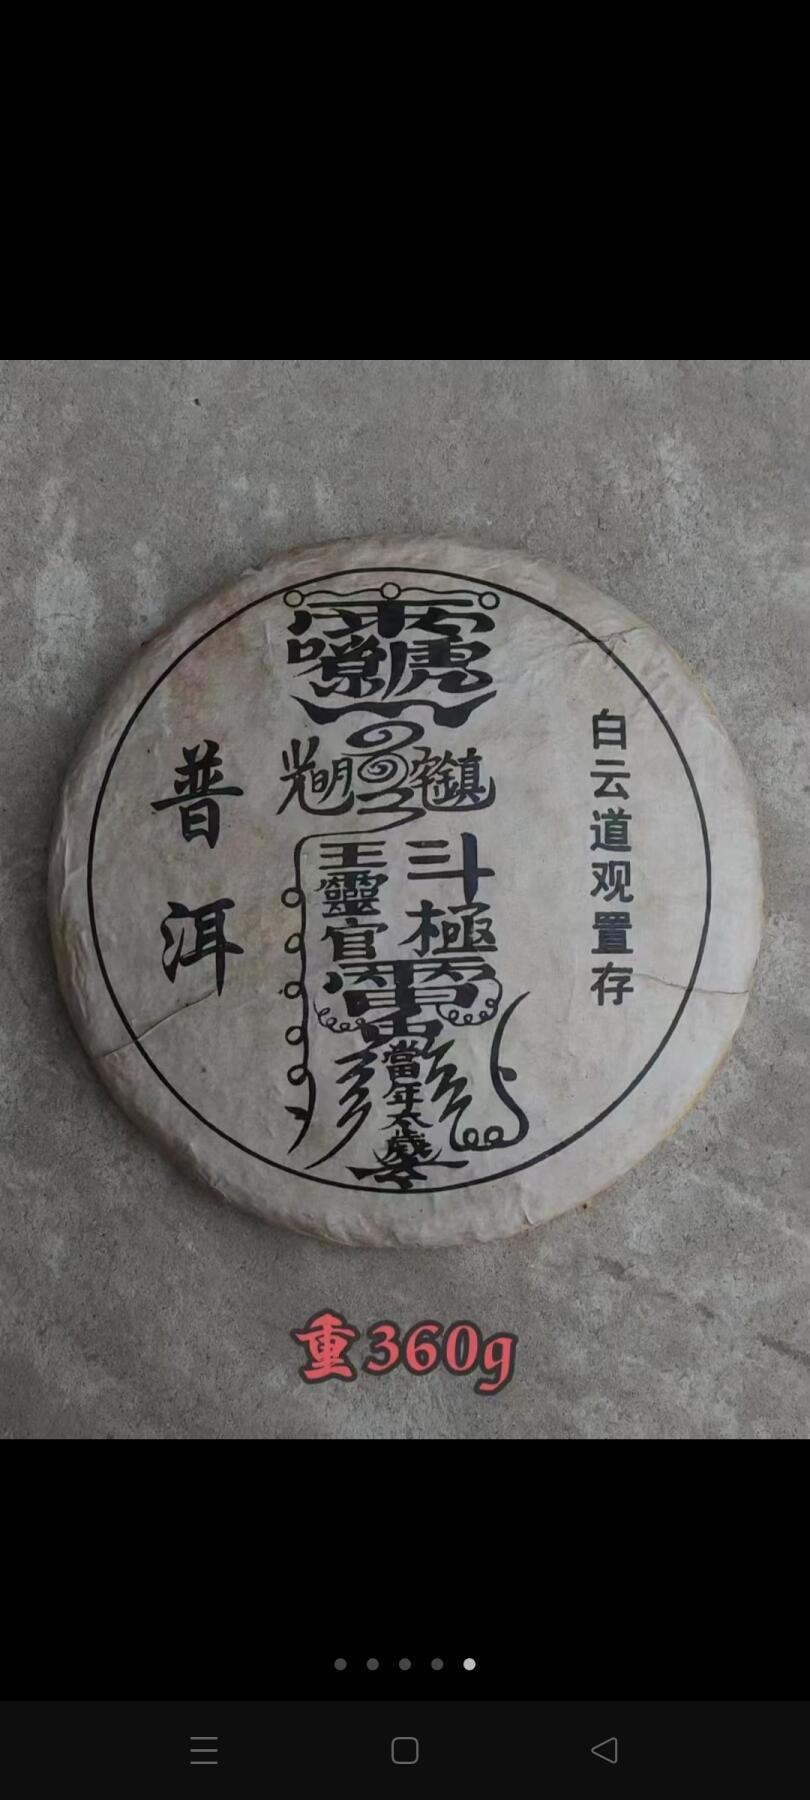 白云道观置存
光明
鎮宅
斗極
王靈官
當年太歲
普洱
重360g